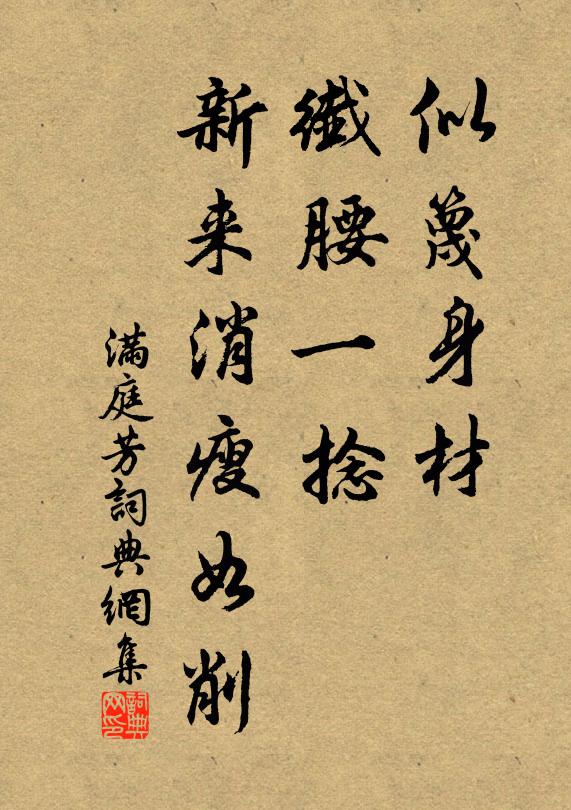 似篾身材
纖腰一捻
新来消瘦如削
满庭芳詞典網集
詞典
网印